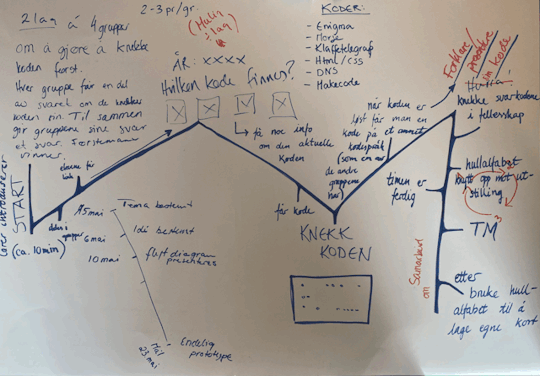 2 lag á 4 grupper
2-3 pr/gr.
om å gjøre å knekke
koden først.
Hver gruppe får en del
av svaret om de knekker
koden sin. Til sammen
gir gruppene sine svar
et svar. Førstemann
vinner.
(Mulin
i lag)
ÅR: XXXX
Hvilken kode finnes?
KODER:
- Enigma
- Morse
- Klaffetelegraf
- Html/css
- DNS
- Makecode
få noe info
om den aktuelle
koden
Lærer introduserer
START
(ca. 10 min)
elevene får
link
deles i
grupper
får kode
KNEKK
KODEN
når koden er
løst får man en
kode på et annet
kodespråk
(som en av
de andre
gruppene
har)
Forklare/
kode
Knekke svar-kodene
i fellesskap
timen er
ferdig
hullalfabet
opp mot ut-
stilling
TM
Samarbeid
om
etter
bruke hull-
alfabet til å
lage egne kort
5 mai
Tema bestemt
6 mai
Idé bestemt
10 mai
flytdiagram
presenteres
Mål
23 mai
Endelig
prototype